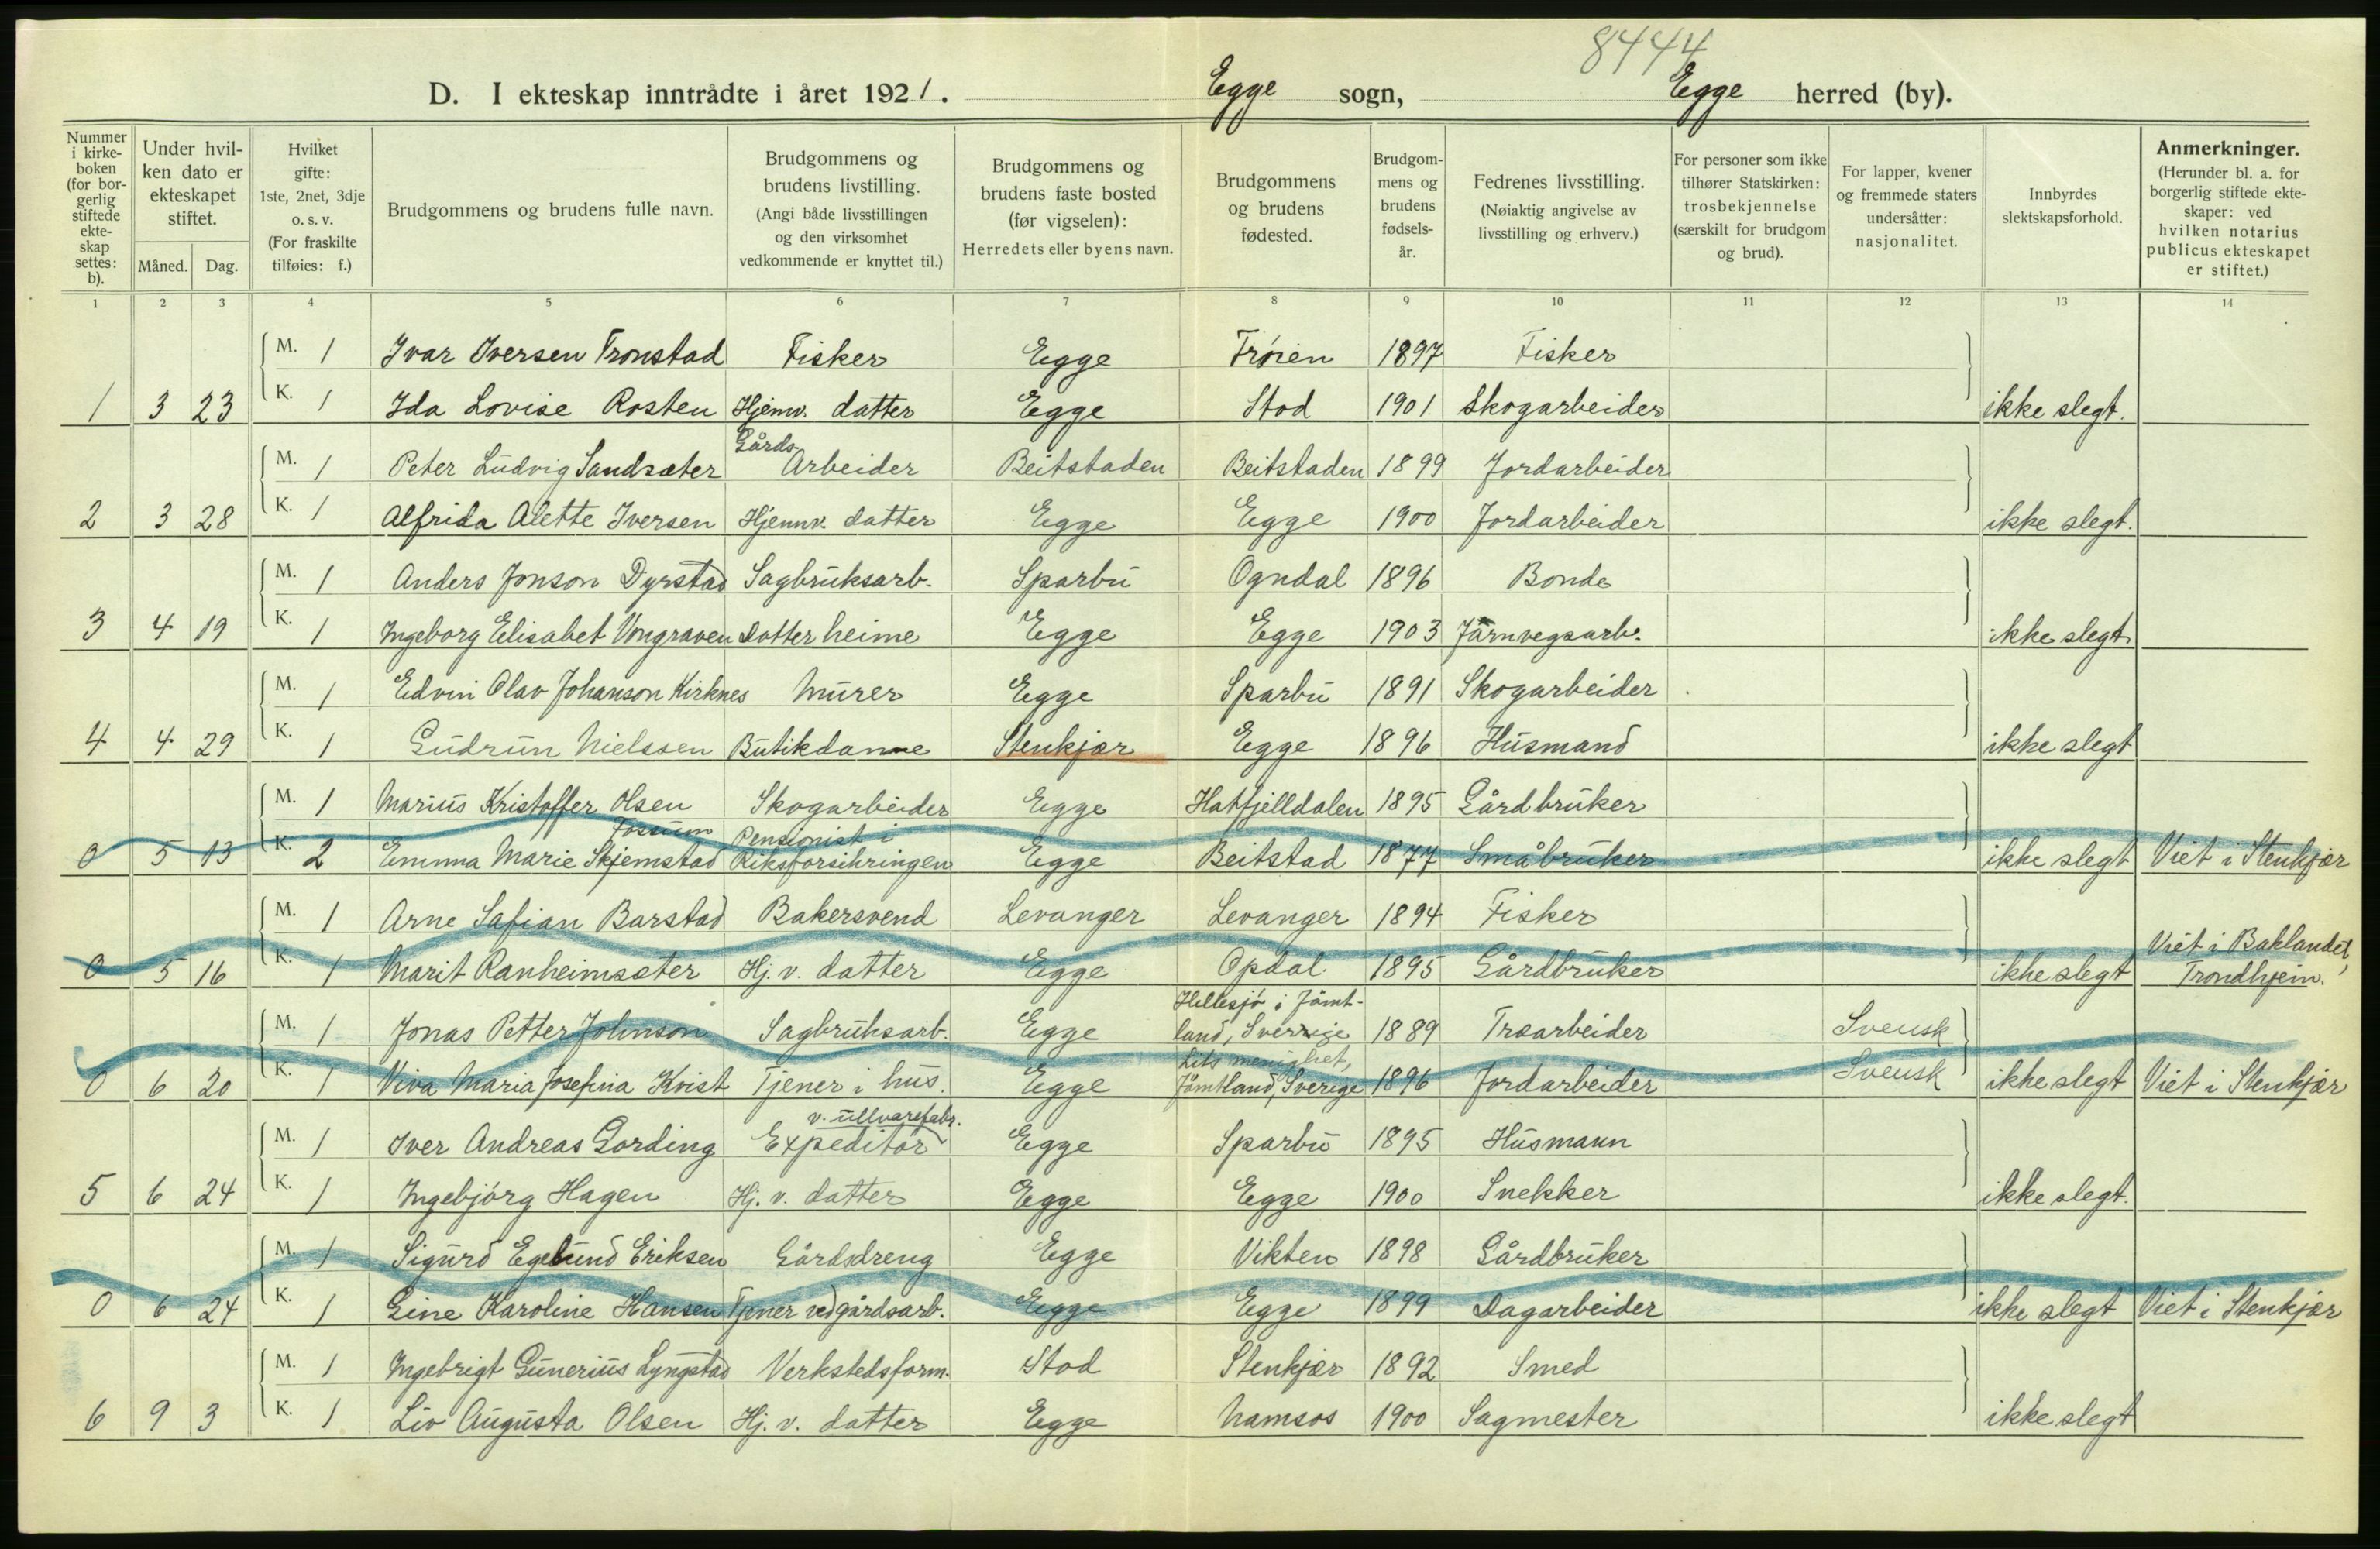 8444
D. I ekteskap inntrådte i året 1921. Egge sogn, Egge herred (by).
Nummer i kirkeboken (for borgerlig stiftede ekteskap settes: b).
Under hvilken dato er ekteskapet stiftet.
Måned. Dag.
Hvilket gifte: 1ste, 2net, 3dje o. s. v. (For fraskilte tilføies: f.)
Brudgommens og brudens fulle navn.
Brudgommens og brudens livstilling. (Angi både livsstillingen og den virksomhet vedkommende er knyttet til.)
Brudgommens og brudens faste bosted (før vigselen): Herredets eller byens navn.
Brudgommens og brudens fødested.
Brudgommens og brudens fødselsår.
Fedrenes livsstilling. (Nøiaktig angivelse av livsstilling og erhverv.)
For personer som ikke tilhører Statskirken: trosbekjennelse (særskilt for brudgom og brud).
For lapper, kvener og fremmede staters undersåtter: nasjonalitet.
Innbyrdes slektskapsforhold.
Anmerkninger. (Herunder bl. a. for borgerlig stiftede ekteskaper: ved hvilken notarius publicus ekteskapet er stiftet.)
1 2 3 4 5 6 7 8 9 10 11 12 13 14
M. 1 Ivar Iversen Tronstad Fisker Egge Frøien 1897 Fisker
1 3 23 K. 1 Ida Lovise Rosten Hjemv. datter Egge Stod 1901 Skogarbeider ikke slegt.
M. 1 Peter Ludvig Sandsæter Gårds Arbeider Beitstaden Beitstaden 1899 Jordarbeider
2 3 28 K. 1 Alfrida Alette Iversen Hjemv. datter Egge Egge 1900 Jordarbeider ikke slegt.
M. 1 Anders Jonson Dyrstad Sagbruksarb. Sparbu Ogndal 1896 Bonde
3 4 19 K. 1 Ingeborg Elisabet Vongraven Datter heime Egge Egge 1903 Järnvegsarb. ikke slegt.
M. 1 Edvin Olav Johanson Kirknes Murer Egge Sparbu 1891 Skogarbeider
4 4 29 K. 1 Gudrun Nielssen Butikdame Stenkjær Egge 1896 Husmand ikke slegt
M. 1 Marius Kristoffer Olsen Skogarbeider Egge Hatfjelldalen 1895 Gårdbruker
Fossum Pensjonist i
0 5 13 K. 2 Emma Marie Skjemstad Riksforsikringen Egge Beitstad 1877 Småbruker ikke slegt Viet i Stenkjær
M. 1 Arne Safian Barstad Bakersvend Levanger Levanger 1894 Fisker
Viet i Baklandet,
0 5 16 K. 1 Marit Ranheimsæter Hj. v. datter Egge Opdal 1895 Gårdbruker ikke slegt Trondhjem.
Hellesjö i Jämt-
M. 1 Jonas Petter Johnson Sagbruksarb. Egge land, Sverige 1889 Træarbeider Svensk
Lits menighet,
0 6 20 K. 1 Viva Maria Josefina Kvist Tjener i hus. Egge Jämtland, Sverige 1896 Jordarbeider Svensk ikke slegt Viet i Stenkjær
v. ullvarefabr.
M. 1 Iver Andreas Gording Expeditör Egge Sparbu 1895 Husmann
5 6 24 K. 1 Ingebjörg Hagen Hj. v. datter Egge Egge 1900 Snekker ikke slegt.
M. 1 Sigurd Egelund Eriksen Gårdsdreng Egge Vikten 1898 Gårdbruker
0 6 24 K. 1 Gine Karoline Hansen Tjener ved gårdsarb. Egge Egge 1899 Dagarbeider ikke slegt Viet i Stenkjær
M. 1 Ingebrigt Gunerius Lyngstad Verkstedsform. Stod Stenkjær 1892 Smed
6 9 3 K. 1 Liv Augusta Olsen Hj. v. datter Egge Namsos 1900 Sagmester ikke slegt